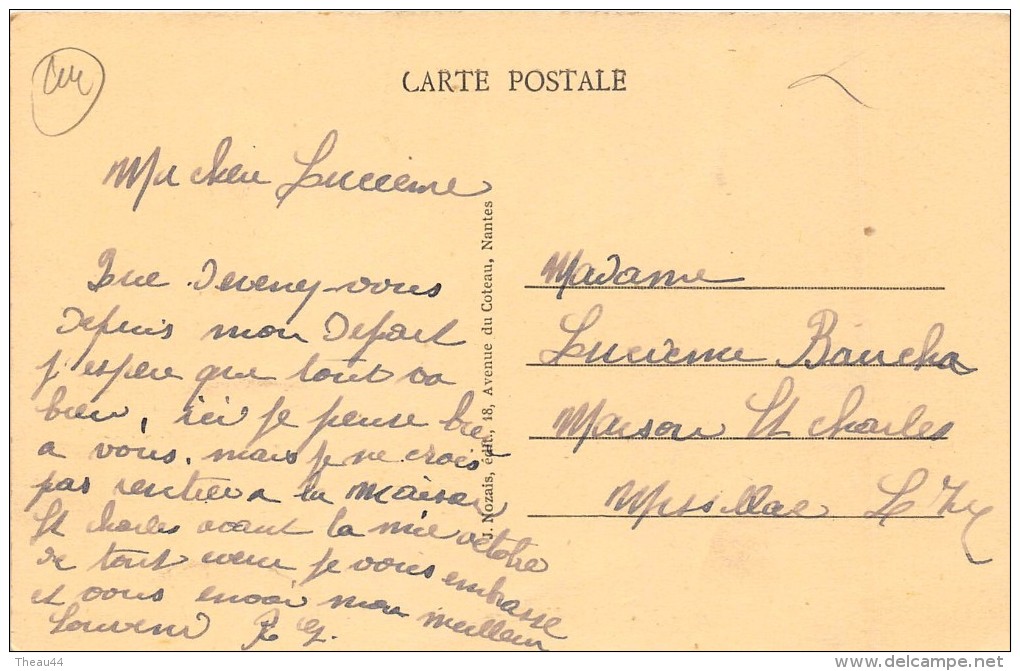 CARTE POSTALE
Ma cher Lucienne
Que deveney-vous
depuis mon depart
j'espere que tout va
bien, ici je pense bien
a vous, mais je ne crois
pas rentrer a la maison
St Charles avant la mie octobre
de tout cœur je vous embrasse
et vous envoie mon meilleur
Souvenir
J. Nozais, édit., 18, Avenue du Coteau, Nantes
Madame
Lucienne Baucha
Maison St Charles
Missillac L. Inf
Theau44
www.delcampe.net